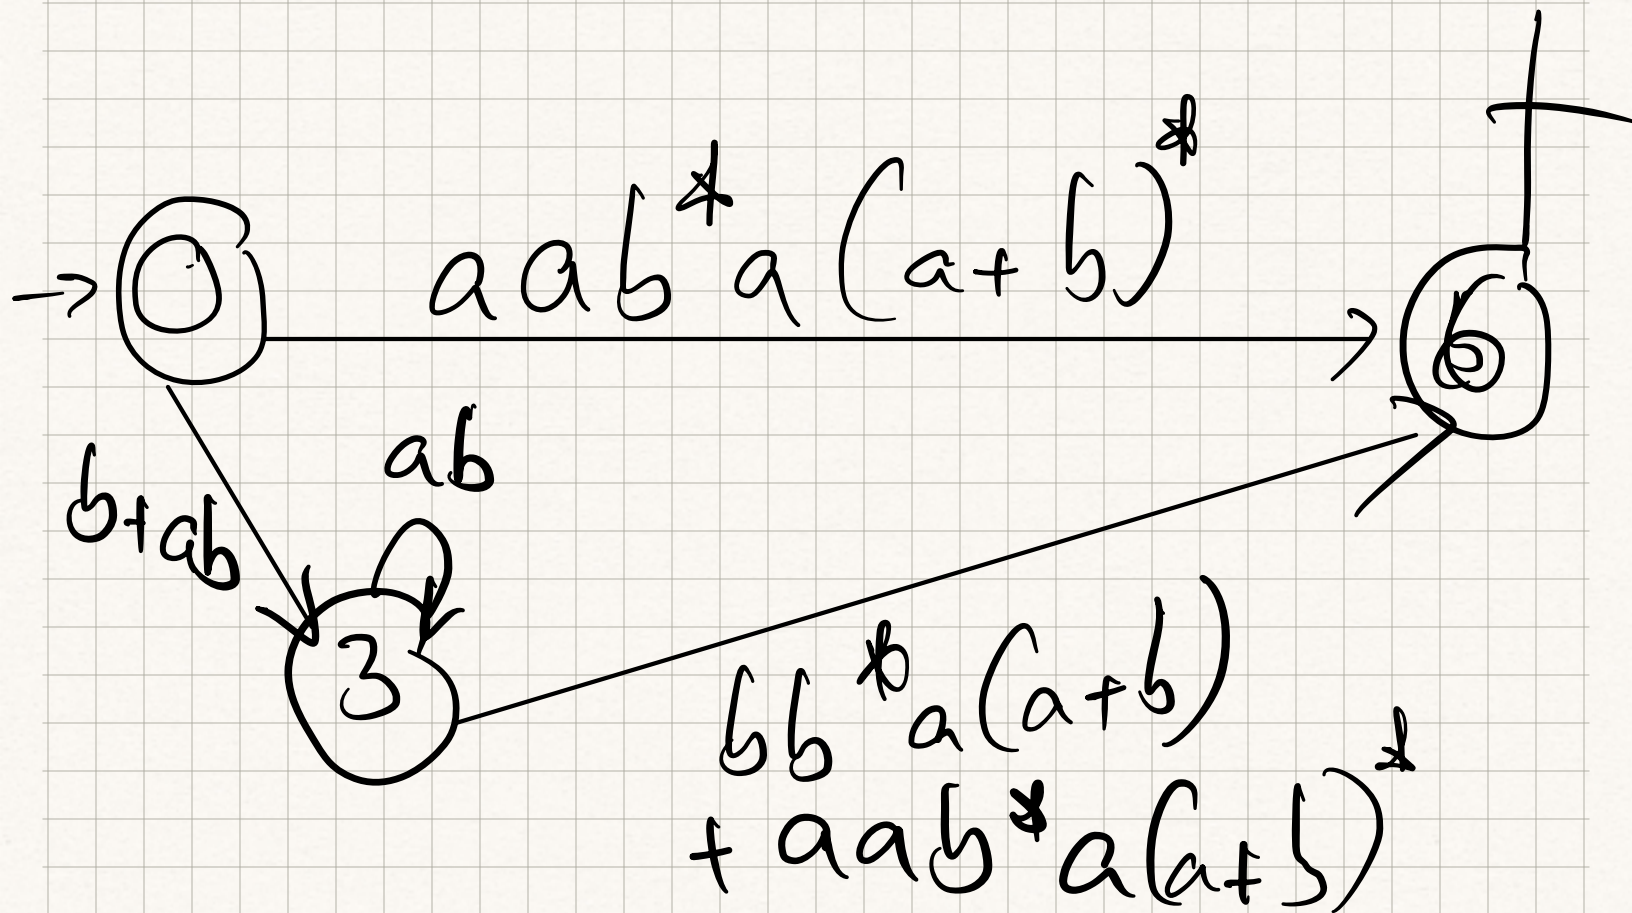 aab*a(a+b)*
0
6
ab
b+ab
3
bb*a(a+b)
+aab*a(a+b)*